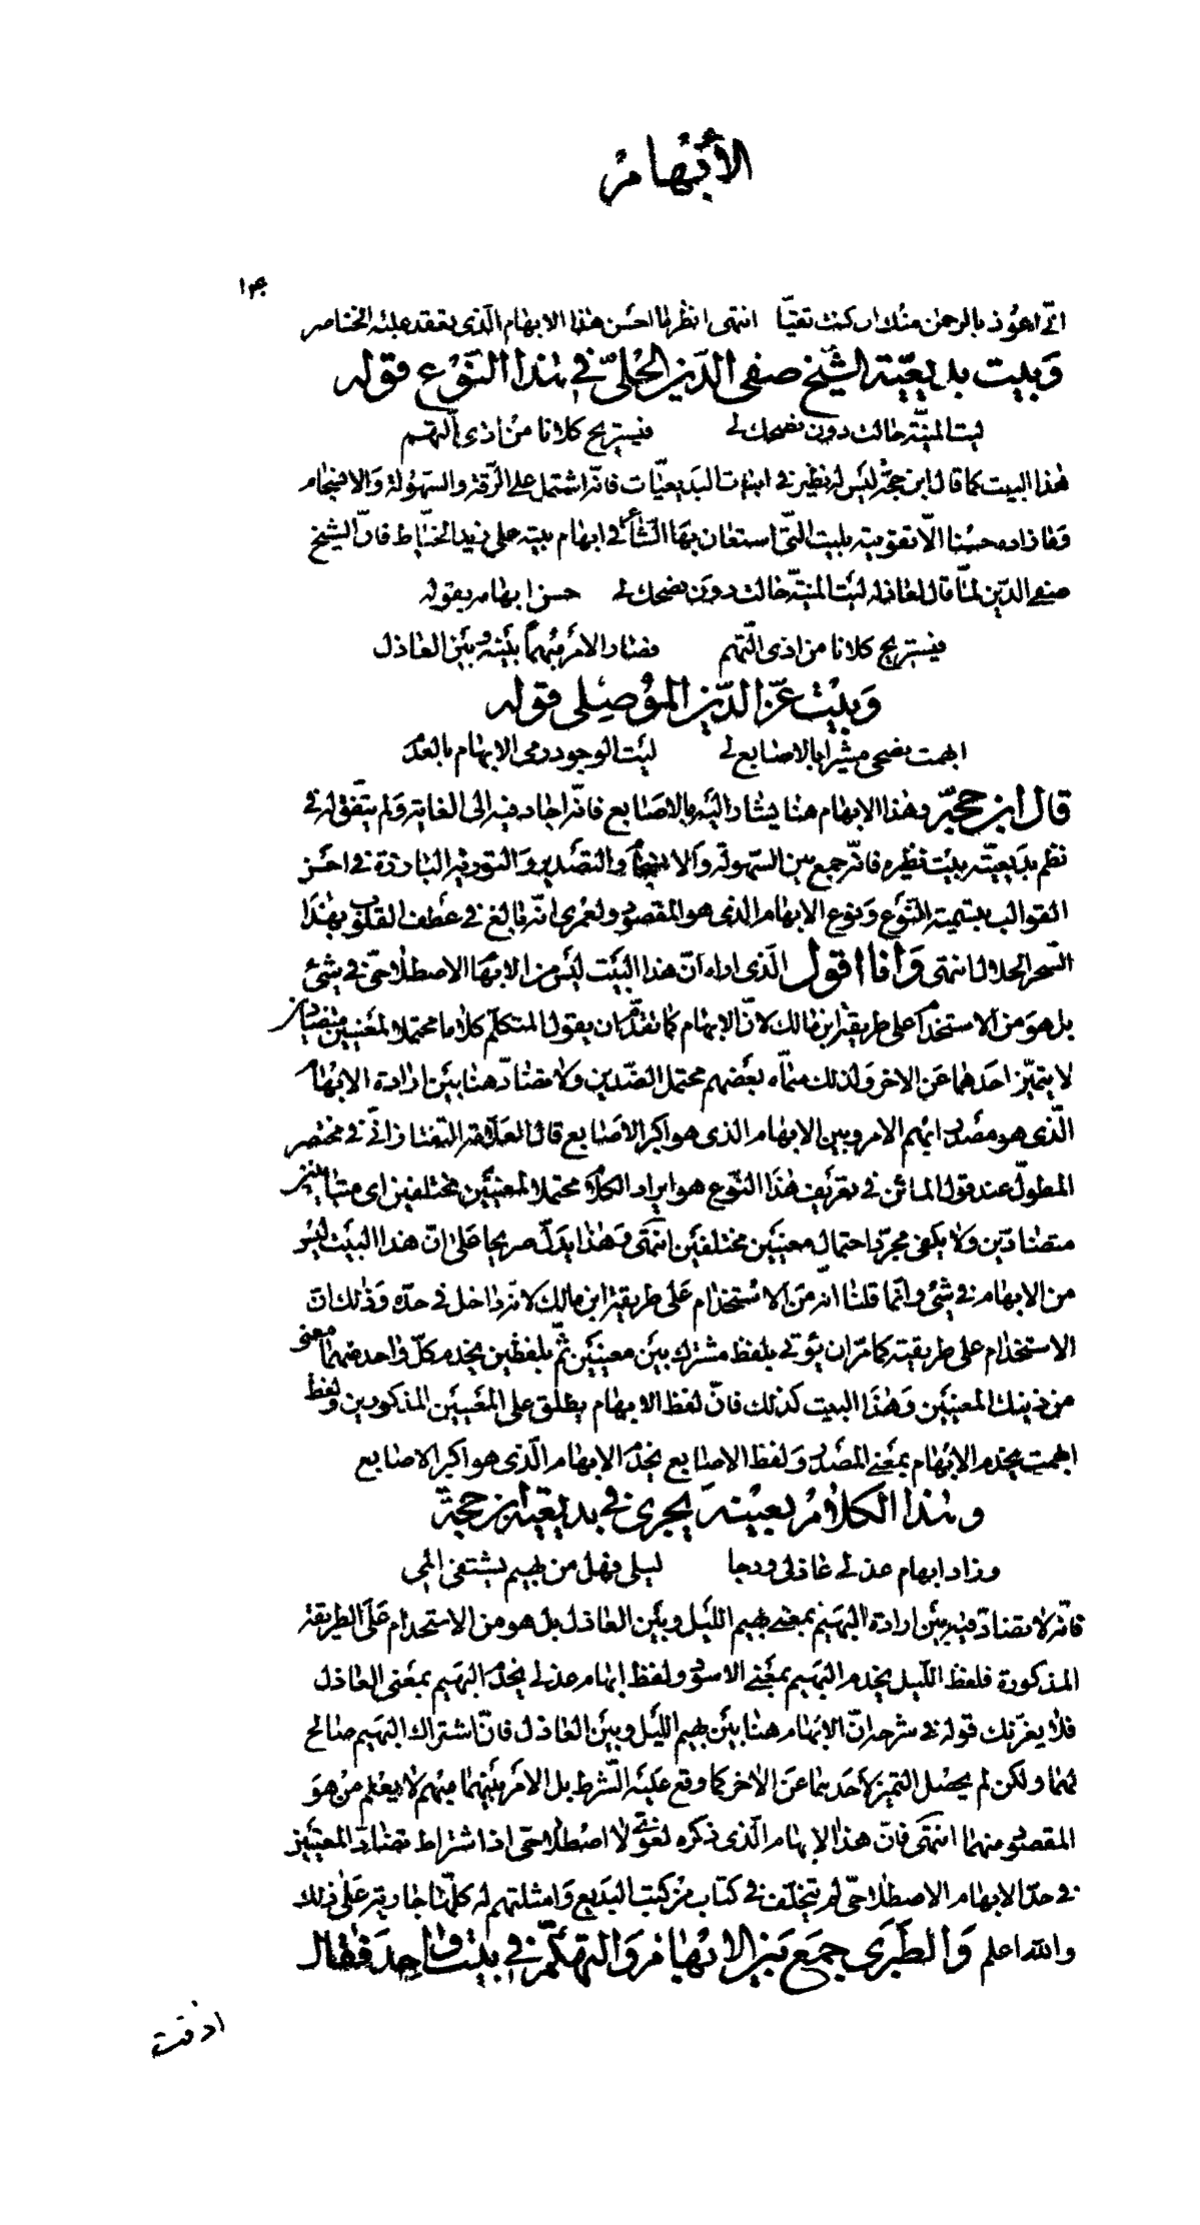 الأبهام
انّي اعوذ بالرحمن منك ان كنت تقيّا انتهى انظر ما احسن هذا الابهام الّذى يعقد عليه الخناصر
وَبيت بديعيّة الشيخ صفى الدّين الحلّىّ فى هذا النّوع قوله
ليت المنيّة حالت دون نصحك لى فيستريح كلانا من اذى التهم
هذا البيت كما قال ابن حجّة ليس له نظير فى ابيات البديعيّات فانّه اشتمل على الرّقة والسّهولة وَالانسجام
وَمَا زاده حسنا الّا تقويته بليت الّتى استعان بهَا الشّاعر فى ابهام بيته على زيد الخيّاط فانّ الشيخ
صفى الدّين لمّا قال لعاذله ليت المنيّة حالت دون نصحك لى حسن ابهامه بقوله
فيستريح كلانا من اذى التّهم فصار الامر مبهماً بينه وبين العاذل
وَبيت عزّ الدّين الموصلى قوله
ابهمت نصحى مشيرا بالاصابع لى ليت الوجود رمى الابهام بالعدم
قال ابن حجّة وهذا الابهام هنا يشار اليه بالاصَابع فانّه اجاد فيه الى الغاية وَلم يتّفق له فى
نظم بديعيّته بيت نظيره فانّه جمع بين السّهولة وَالانسجام وَالتصدير وَالتورية البارزة فى احسن
القوالب بتسمية النّوع وَنوع الابهام الذى هو المقصود ولعمرى انّه بالغ فى عطف القلوب بهذا
السّحر الحلال انتهى وَأنا اقول الّذى اراه انّ هذا البيت ليس من الابهام الاصطلاحىّ فى شئ
بل هوَ من الاستخدام على طريقة ابن مالك لانّ الابهام كما تقدّم ان يقول المتكلّم كلاما محتملا لمعنيين متضادين
لا يتميّز احدهما عَن الاخر وَلذلك سمّاه بعضهم محتمل الضّدين وَلا تضادّ هنا بين ارادة الابهام
الّذى هو مصدر ابهم الامر وبين الابهام الذى هو اكبر الاصابع قال العلّامة التفتازانّى فى مختصر
المطوّل عند قول الماتن فى تعريف هذا النّوع هو ايراد الكلام محتملا لمعنيين مختلفين اى متباينين
متضادّين وَلا يكفى مجرّد احتمال معنيين مختلفين انتهى وَهذا يدلّ صريحا على انّ هذا البيت ليس
من الابهام فى شئ وانّما قلنا انّه من الاستخدام عَلى طريقة ابن مالك لانّه داخل فى حدّه وَذلك انّ
الاستخدام على طريقته كما مرّ ان يؤتى بلفظ مشترك بين معنيين ثمّ بلفظين يخدم كلّ واحد منهما معنى
من ذينك المعنيين وَهذا البيت كذلك فانّ لفظ الابهام يطلق على المعنيين المذكورين ولفظ
ابهمت يخدم الابهام بمعنى المصدر وَلفظ الاصابع يخدم الابهام الّذى هو اكبر الاصابع
وهذا الكلامُ بعينه يجرى فى بديعيّة ابن حجّة
وزاد ابهام عذلى عاذلى ودجا ليلى فهل من بهيم يشتفى المى
فانّه لا تضادّ فيه بين ارادة البهيم بمعنى بهيم اللّيل وبين العاذل بل هو من الاستخدام عَلى الطريقة
المذكورة فلفظ اللّيل يخدم البهيم بمعنى الاسود ولفظ ابهام عذلى يخدم البهيم بمعنى العاذل
فلا يغرّنك قوله فى شرحه انّ الابهام هنا بين بهيم اللّيل وبين العاذل فانّ اشتراك البهيم صالح
لهما ولكن لم يحصل التميز لاحدهما عَن الاخر كما وقع عليه الشّرط بل الامر بينهما مبهم لا يعلم من هوَ
المقصود منهما انتهى فانّ هذا الابهام الّذى ذكره لغوىّ لا اصطلاحىّ اذ اشتراط تضادّ المعنيين
فى حدّ الابهام الاصطلاحىّ لم يتخلّف فى كتاب من كتب البديع وَامثلتهم له كلّها جارية على ذلك
والله اعلم وَالطّبرى جمَع بَين الابهام وَالتهكّم فى بيت واحد فقال